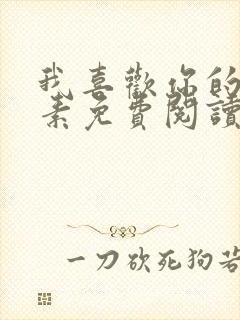 我喜歡你的
素免費閱讀
一刀砍死狗若